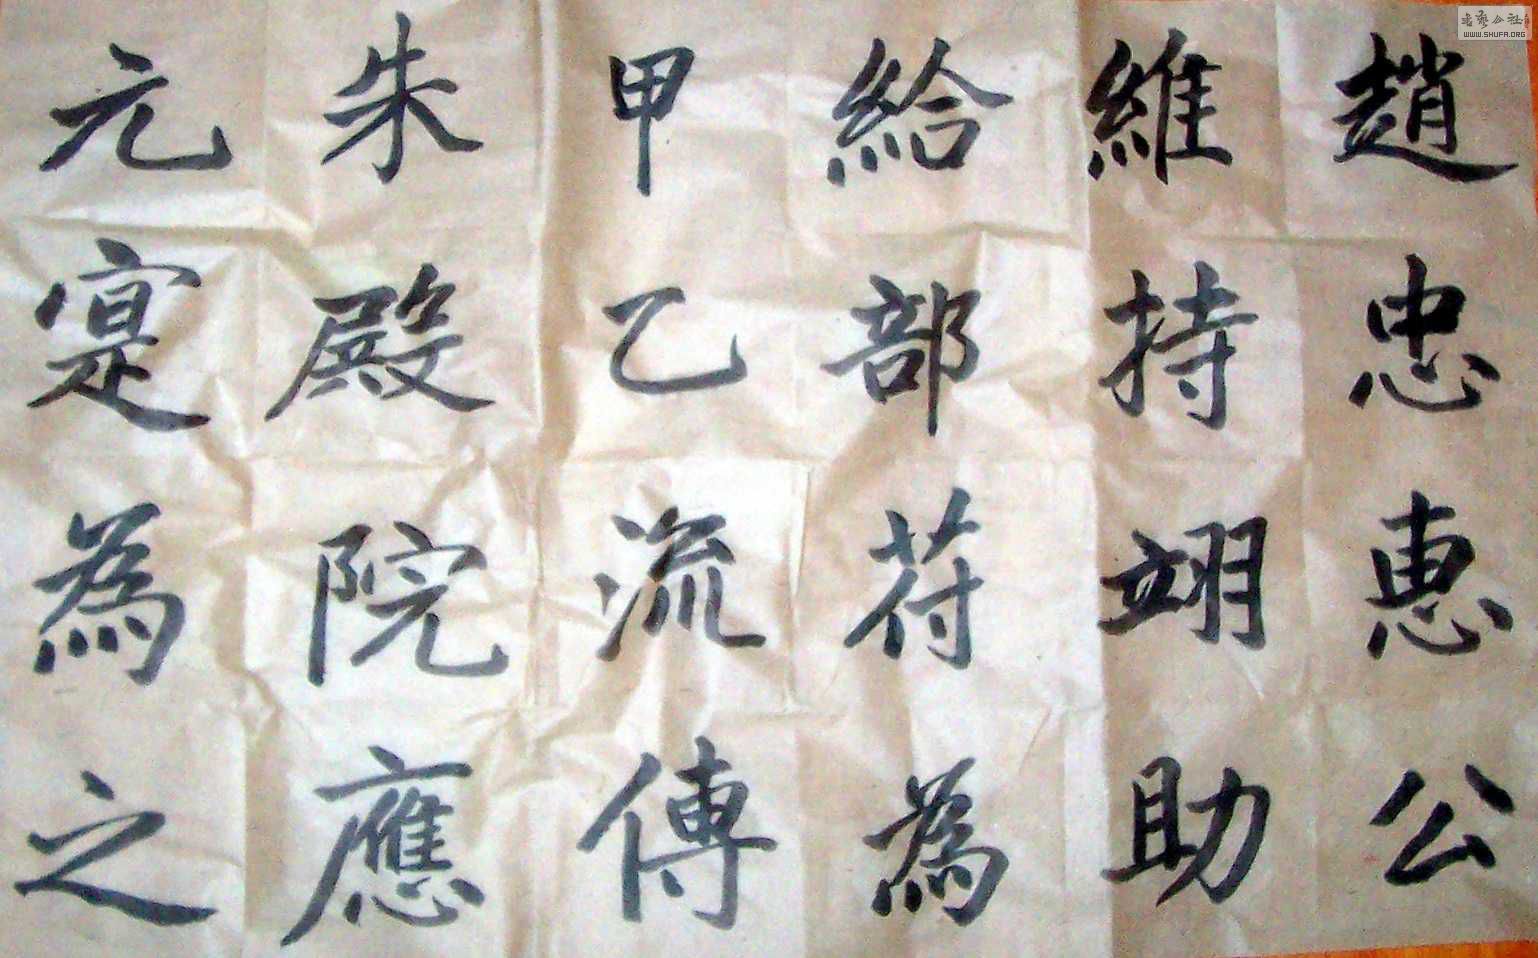 趙忠惠公
維持翊助
給部苻為
甲乙流傳
朱殿院應
元寔為之
書藝公社
WWW.SHUFA.ORG